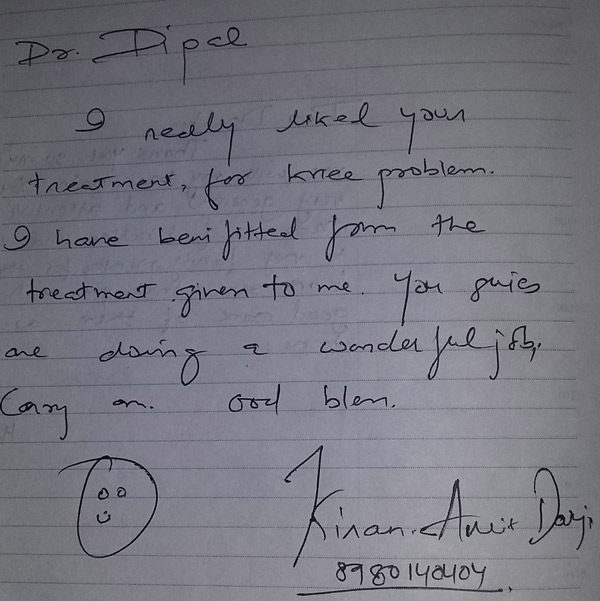 Dr. Dipal
I really liked your
treatment, for knee problem.
I have benifitted form the
treatment given to me. You guies
are doing a wonderful job,
Carry on. Good bless.
Kiran. Amit Darji
8980140404